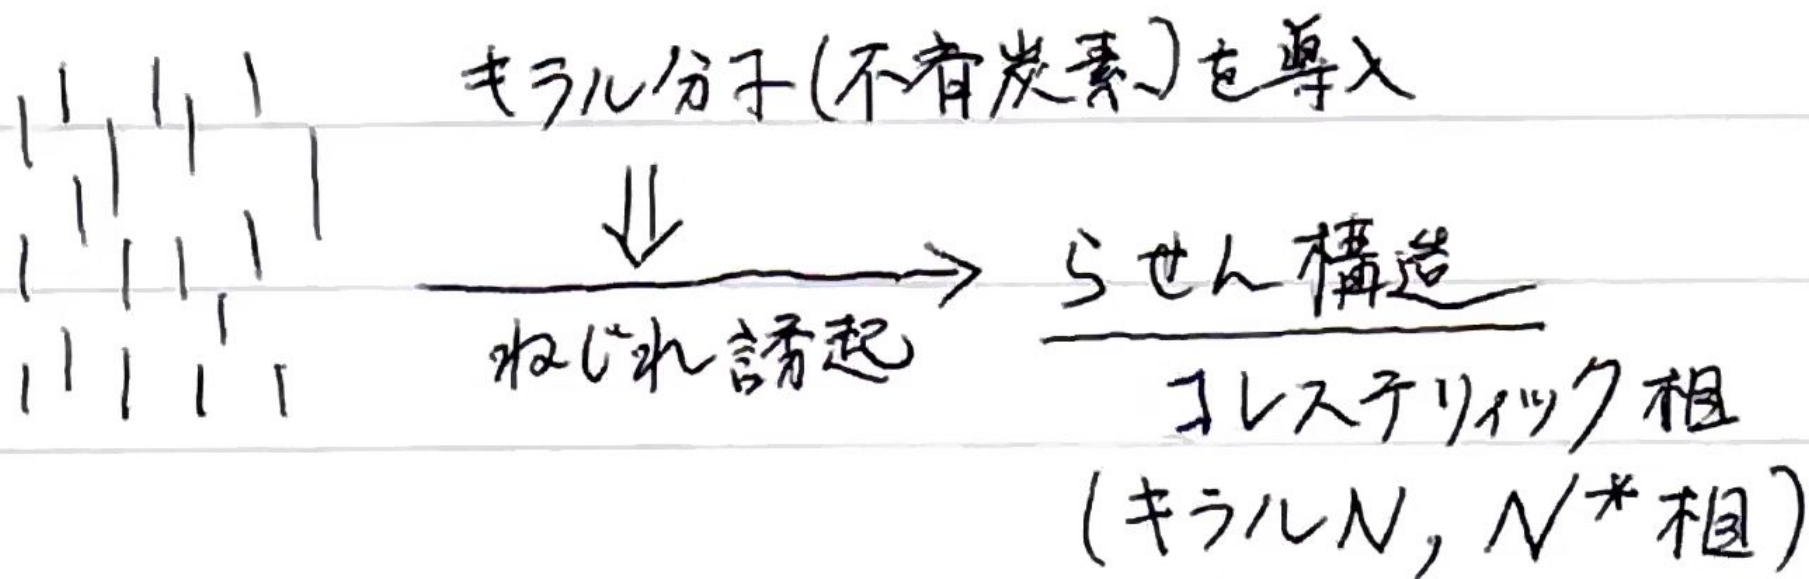 キラル分子(不斉炭素)を導入
ねじれ誘起
らせん構造
コレステリィック相
(キラルN, N*相)